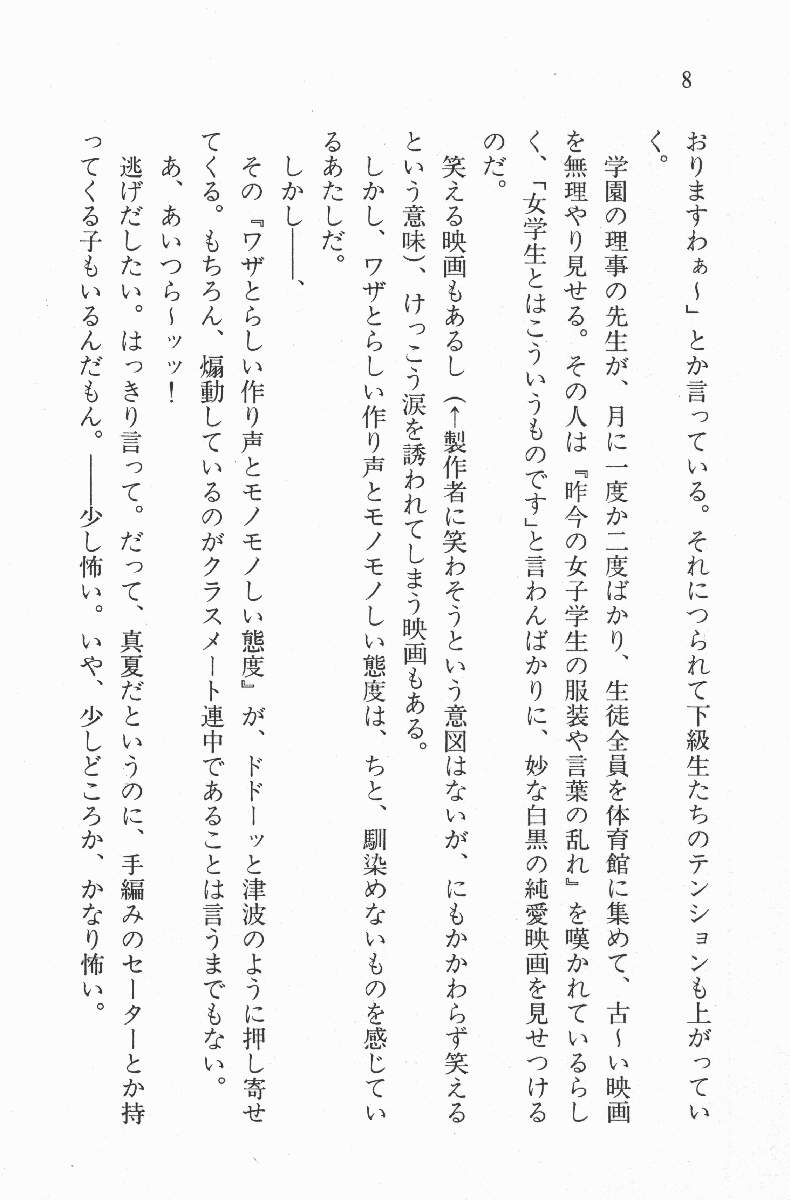 8
おりますわぁ〜」とか言っている。それにつられて下級生たちのテンションも上がってい
く。
学園の理事の先生が、月に一度か二度ばかり、生徒全員を体育館に集めて、古〜い映画
を無理やり見せる。その人は『昨今の女子学生の服装や言葉の乱れ』を嘆かれているらし
く、「女学生とはこういうものです」と言わんばかりに、妙な白黒の純愛映画を見せつける
のだ。
笑える映画もあるし（↑製作者に笑わそうという意図はないが、にもかかわらず笑える
という意味）、けっこう涙を誘われてしまう映画もある。
しかし、ワザとらしい作り声とモノモノしい態度は、ちと、馴染めないものを感じてい
るあたしだ。
しかし――、
その『ワザとらしい作り声とモノモノしい態度』が、ドドーッと津波のように押し寄せ
てくる。もちろん、煽動しているのがクラスメート連中であることは言うまでもない。
あ、あいつら〜ッッ！
逃げだしたい。はっきり言って。だって、真夏だというのに、手編みのセーターとか持
ってくる子もいるんだもん。――少し怖い。いや、少しどころか、かなり怖い。